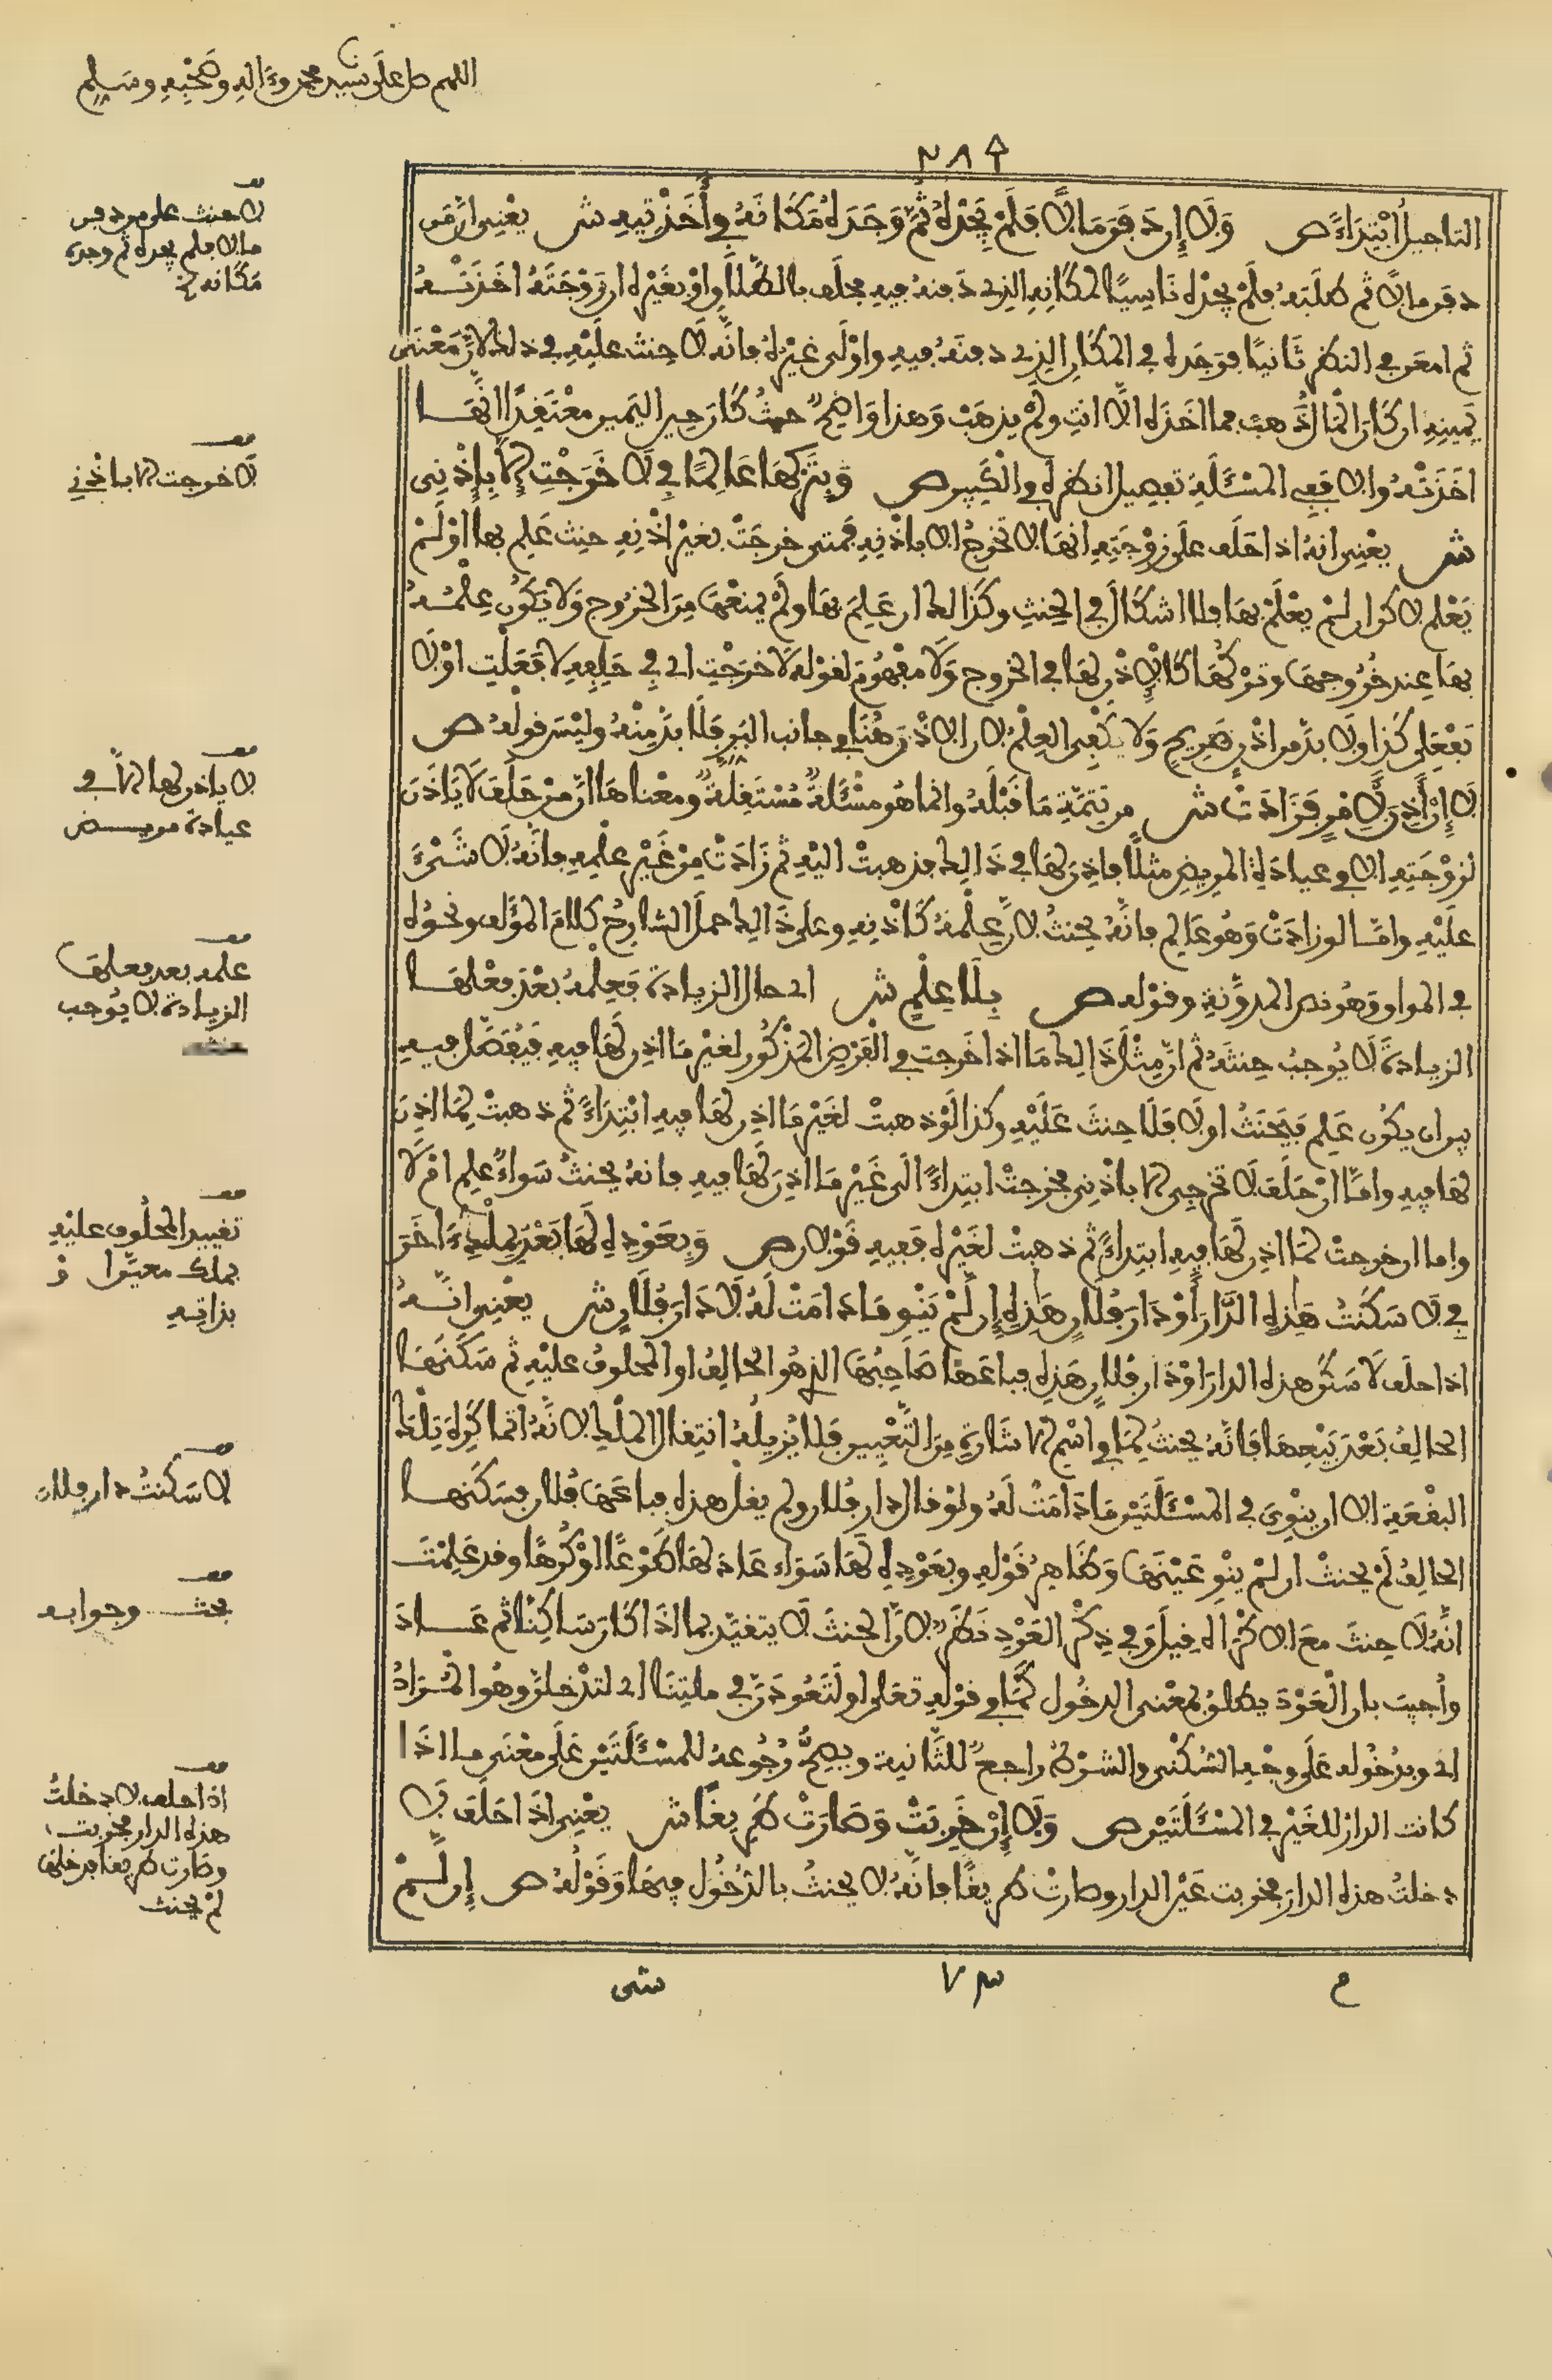 اللهم صل على سيدنا محمد وءاله وصحبه وسلم
٢٨٩
التاجيل ابْتِدَاءً ص وَلَا إِن دَفَنَ مَالًا فَلَمْ يَجِدْهُ ثُمَّ وَجَدَهُ مَكَانَهُ فِي أَخَذْتِيهِ ش يعْنِي ان من
دفن مالا ثم طلبَه فلمْ يجدْه نَاسِيًا لمكانِه الذي دَفنه فيه فحلف بالطلاق اوْ بغَيْره ان زوْجَتَه اخذَتْه
ثم امعن في النظر ثَانيًا فوَجَده في المكان الذي دفنَه فيه واوْلى غيْرُه فانه لا حِنث عليْه في ذلك لان معْنَى
يمينه ان كان المال ذهب فما اخذه الا انتِ ولم يذهَبْ وهذا وَاضِح حيث كان حِين اليَمين معْتَقِدًا انها
اخَذَتْه والا ففي المسْئَلَة تفصِيل انظره في الكَبِير ص وَبِتَرْكِهَا عَالِمًا فِي لَا خَرَجْتِ إِلَّا بِإِذْنِي
ش يعْني انه اذا حَلَف على زوْجَتِه انهَا لا تخرُج الا باذْنِه فمتى خرجَتْ بغيْر اذْنِه حنِث عَلِم بها اوْ لَمْ
يَعْلم لاكن ان لمْ يعْلَمْ بهَا فلا اشكَالَ في الحِنث وكَذالك ان عَلِمَ بهَا ولَمْ يمنعْهَا مِنَ الخرُوج وَلا يَكون عِلْمُه
بهَا عِند خُرُوجهَا وترْكُهَا كالإِذْن لهَا في الخروج وَلَا مفهُومَ لقوْله لا خرَجْتِ اي في حَلِفِه لا فعَلْتِ اوْ لا
تفْعَلي كذا ولا بدّ من اذن صَريح وَلا يكْفِي العِلْمُ لان الاذن هُنَا في جانب البر فَلا بدّ مِنْه وليْسَ قوله ص
لَا إِنْ أَذِنَ لِأَمْرٍ فَزَادَتْ ش من تتِمّةِ مَا قَبْلَه وانما هو مسْئَلة مُسْتَقِلة ومعْناها ان مَنْ حَلَفَ لا يَاذَن
لزوْجَتِه الا في عيادَة المريض مثلا فاذِن لهَا في ذَالِك فذهبتْ اليْه ثم زَادَتْ مِنْ غَيْر عِلْمِه فانّه لا شَيْءَ
علَيْه وامّا لو زادَتْ وَهُو عَالِم فانّه يحْنثُ لان عِلْمَه كَاذْنِه وعلى ذَالِك حمل الشارح كلام المؤلف ونحوُه
في المواق وهُو نص المدوَّنة وقوْله ص بِلَا عِلْمٍ ش اي حال الزيادة فعِلْمُه بعْدَ فعْلهَا
الزيادةَ لا يُوجبُ حِنثَه ثم ان مِثْل ذَالِك مَا اذا خَرجت في الفَرْض المذْكُور لغيْر مَا اذِن لَهَا فيه فيُفَصَّل فيه
بين ان يكُون عَلِم فيَحْنَثُ او لا فلا حِنثَ عَلَيْه وكذا لوْ ذهبتْ لغَيْر مَا اذِن لهَا فيه ابْتِدَاءً ثم ذهبتْ لِمَا اذِن
لهَا فيه وامّا ان حَلَفَ لا تخرجي إلا باذْني فخرجتْ ابتداءً الى غَيْر مَا اذِنَ لَهَا فيه فانه يحنثُ سَواءً علِم ام لَا
واما ان خرجتْ لمَا اذن لَهَا فيه ابتداءً ثم ذهبتْ لغَيْره ففيه قوْلان ص وَبِعَوْدِهِ لَهَا بَعْدُ بِمِلْكِ ءَاخَرَ
فِي لَا سَكَنْتُ هَٰذِهِ الدَّارَ أَوْ دَارَ فُلَانٍ هَٰذِهِ إِن لَّمْ يَنْوِ مَا دَامَتْ لَهُ لَا دَارَ فُلَانٍ ش يعْنِي انّه
اذا حلف لَا سَكَن هذه الدار اوْ دَار فلان هَذِه فباعَهَا صَاحِبُهَا الذي هُو الحالِفُ او المحلوفُ عليْه ثم سَكَنَهَا
الحالفُ بَعْدَ بَيْعِهَا فَانّه يحنثُ لِمَا في اسْم الاشارة مِنَ التَّعْيِين فلا يُزيلُه انتِقال المِلْك لانَّه انما كَرِه تِلْكَ
البقْعَة الا ان ينْوِيَ في المسْئَلتَيْن مَا دَامَتْ لَهُ ولوْ قال دار فلان ولم يقل هذه فباعَهَا فلان فسَكَنَهَا
الحالفُ لَمْ يحنثْ ان لمْ ينْوِ عَيْنَهَا وَظَاهِرُ قَوْلِه وبعَوْدِه لَهَا سَوَاء عَادَ لهَا طَوْعًا اوْ كُرْهًا وقد عَلِمْتَ
انَّه لا حِنثَ معَ الاكْرَاه قِيلَ وَفِي ذِكْر العَوْدِ نَظَرٌ لان الحنثَ لَا يتقيّد بما اذَا كَانَ سَاكِنًا ثم عَادَ
وأجِيبَ بان الْعَوْدَ يطلقُ بمعْنى الدخُول كَمَا في قوْلِه تعَلى او لَتَعُودُنّ في ملتِنَا اي لتدْخلنّ وهُو المُرَادُ
اي وبدُخُوله عَلَى وجْه السُّكْنى والشرْطُ راجعٌ للثَّانية ويصِحُّ رُجُوعهُ للمسْئَلَتَيْن عَلَى معْنَى ما اذَا
كانت الدارُ للغَيْر في المسْئَلَتَيْن ص وَلَا إِنْ خَرِبَتْ وَصَارَتْ طَرِيقًا ش يعْنِي اذَا حَلَفَ لا
دخلتُ هذه الدارَ فخربت عَيْن الدار وصارتْ طريقًا فانّه لا يحنثُ بالدُّخُول فيهَا وَقَوْلُه ص إِن لَّمْ
لا حنث على من دفن
مالا فلم يجده ثم وجده
مَكانه الخ
لا خرجت إلا باذْني
لا ياذن لها إلا في
عيادة مريض
علمه بعد فعلها
الزيادة لا يُوجب
حنثه
تغيير المحلُوف عليْه
بذاته
لا سَكنْتُ دار فلان
بحث وجوابه
اذا حلف لا دخلتُ
هذه الدار فخربت
وصارت طريقا فدخلها
لم يحنث